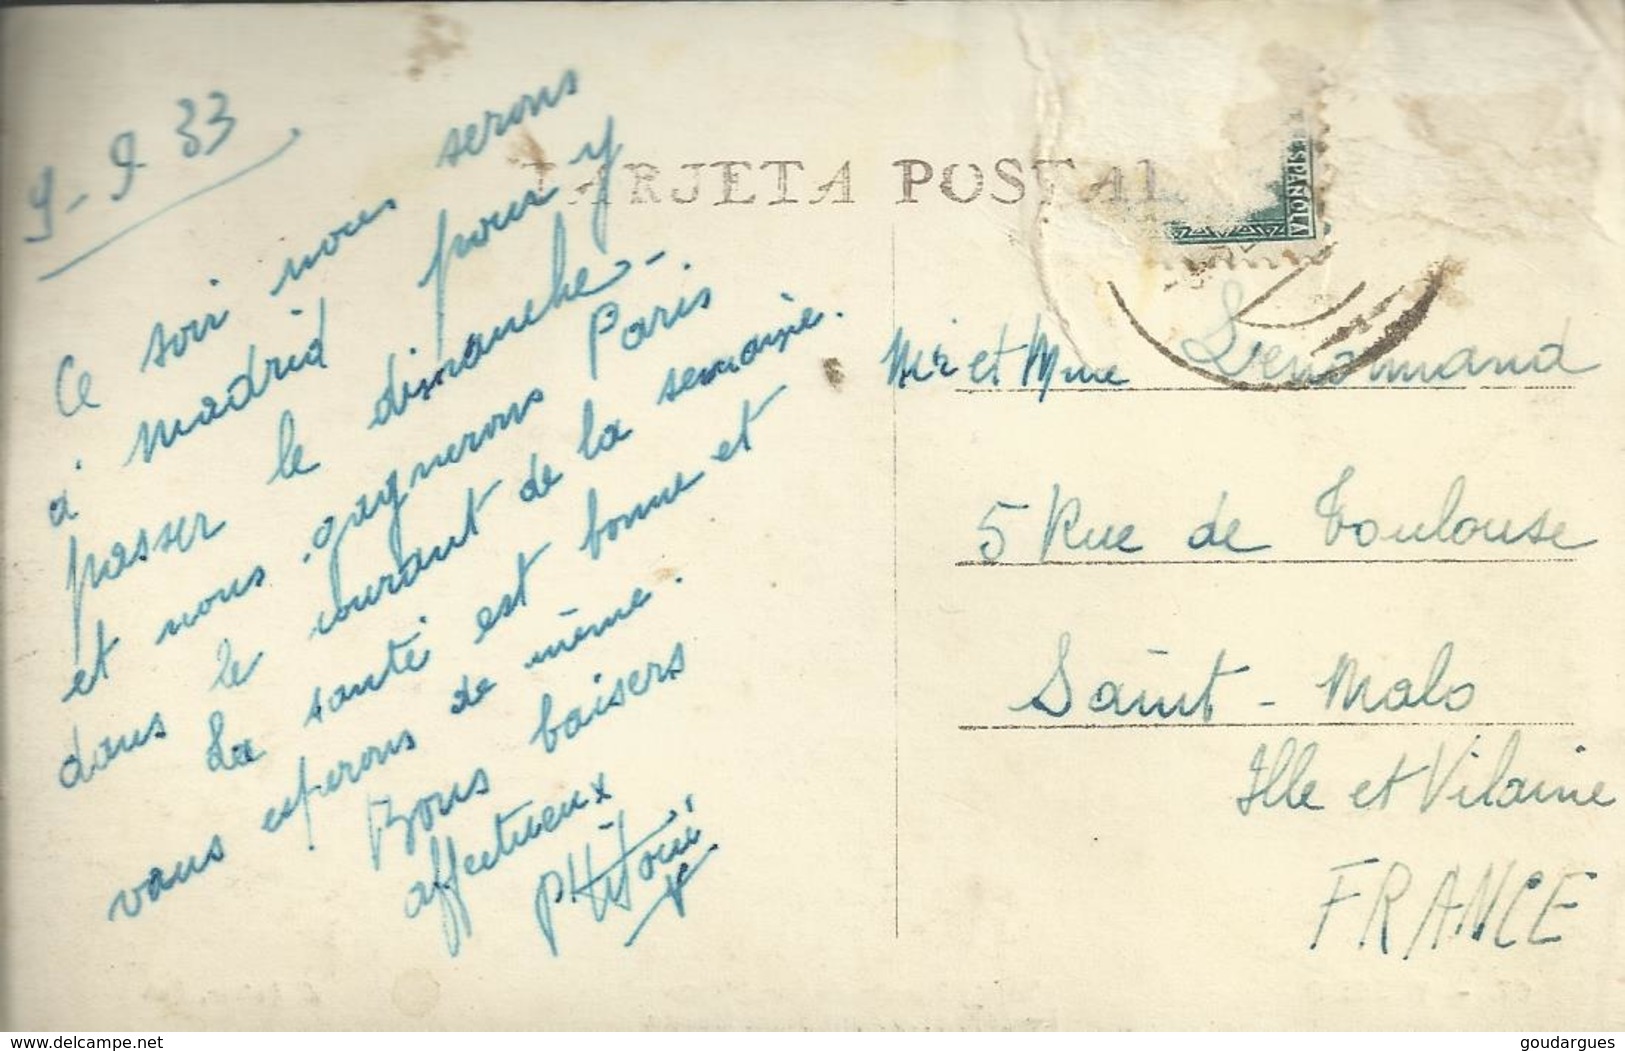 9-9-33
TARJETA POSTAL
ESPAÑOLA
Ce soir nous serons
à Madrid pour y
passer le dimanche -
et nous gagnerons Paris.
dans le courant de la semaine.
La santé est bonne et
vous esperons de même.
Bons baisers
affectueux
Mr et Mme Lenormand
5 Rue de Toulouse
Saint - Malo
Ille et Vilaine
FRANCE
delcampe.net
goudargues